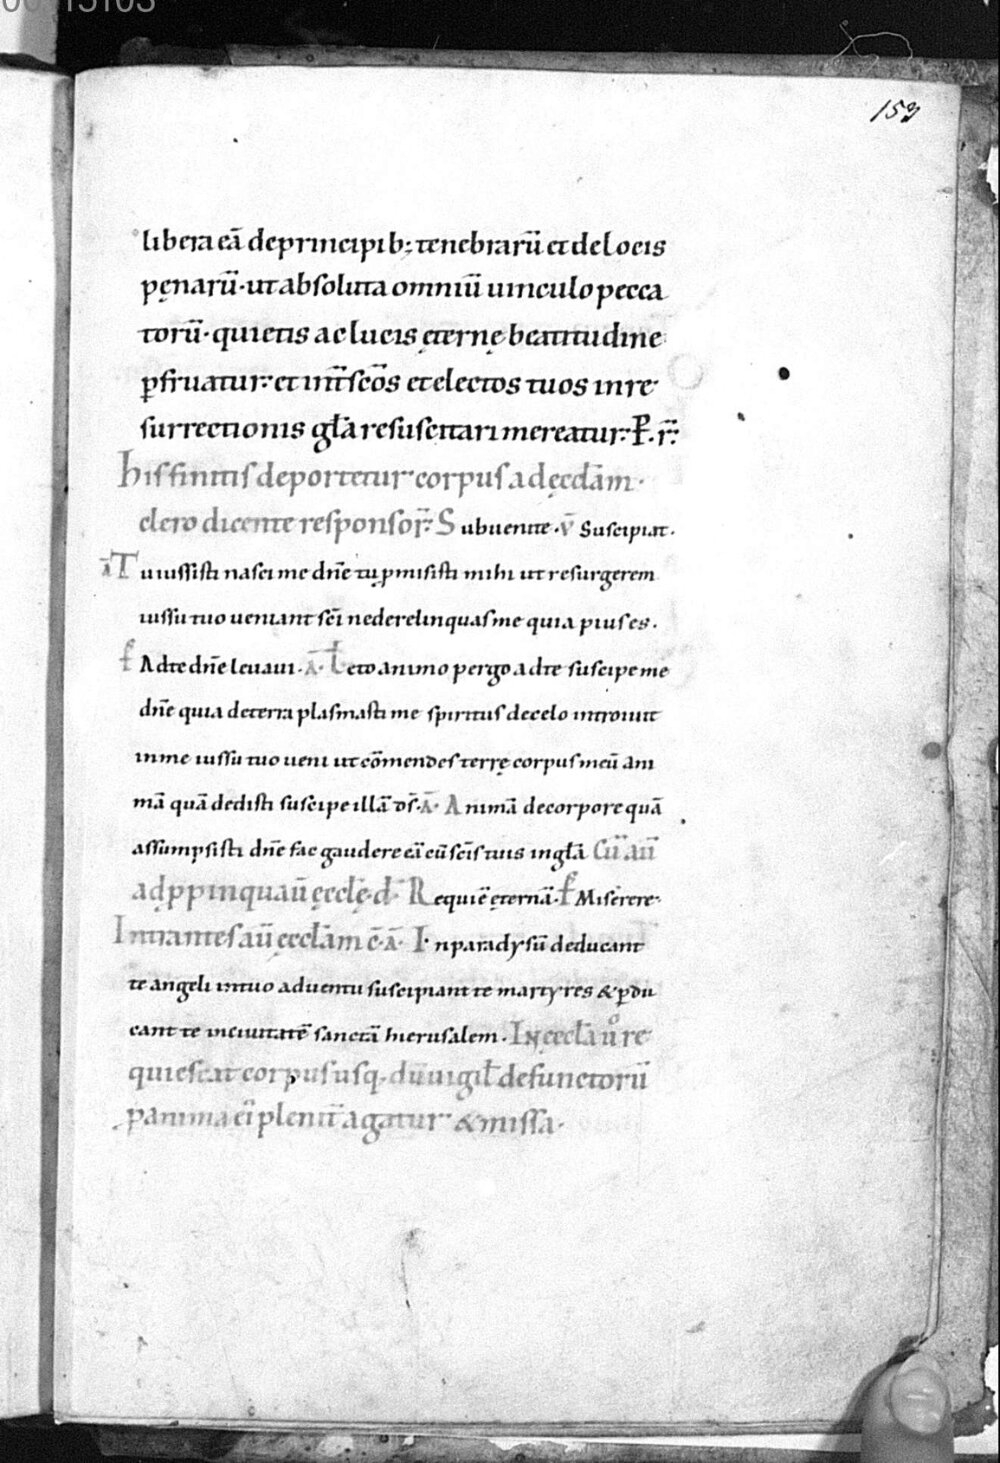 153
libera eā de principib; tenebrarū et de locis
pęnarū· ut absoluta omniū uinculo pecca
torū· quietis ac lucis ęternę beatitudine
ꝑfruatur· et int̄ scōs et electos tuos in re
surrectionis gl̄a resuscitari mereatur·
his finitis deportetur corpus ad ęccl̄am·
clero dicente responsor̄· Subuenite· V̄ Suscipiat·
ā Tu iussisti nasci me dn̄e tu ꝓmisisti mihi ut resurgerem
iussu tuo ueniant sc̄i ne derelinquas me quia pius es·
Ad te dn̄e leuaui· ā· Lęto animo pergo ad te suscipe me
dn̄e quia de terra plasmasti me spiritus de celo introiuit
in me iussu tuo ueni ut cōmendes terrę corpus meū ani
mā quā dedisti suscipe illā ds̄· ā· Animā de corpore quā
assumpsisti dn̄e fac gaudere cū scīs tuis in gl̄a Cū aū
adꝓpinquaū ęcclę· d· Requiē ęternā· Miserere·
Intrantes aū ęccl̄am c̄· ā· In paradysū deducant
te angeli in tuo aduentu suscipiant te martyres & ꝑdu
cant te in ciuitatē sanctā hierusalem· In ęccl̄a ů re
quiescat corpus usq· dū uigil̄ defunctorū
ꝓ anima ei plenit̄ agatur & missa·